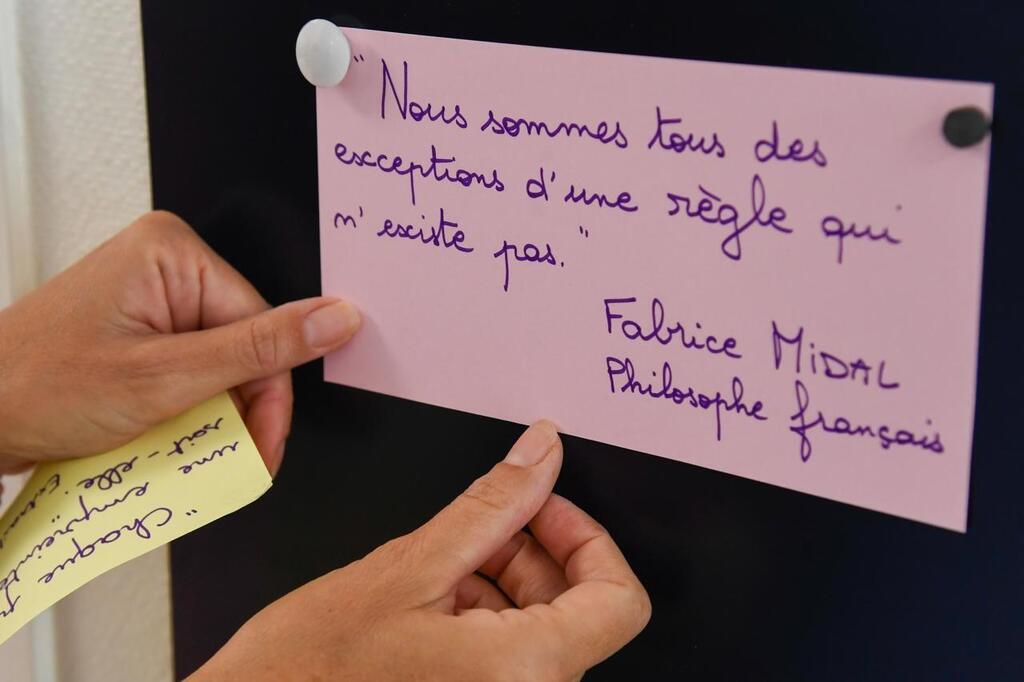 " Nous sommes tous des
exceptions d'une règle qui
n'existe pas."
Fabrice MiDAL
Philosophe français
"Chaque
une empreinte
soit-elle.